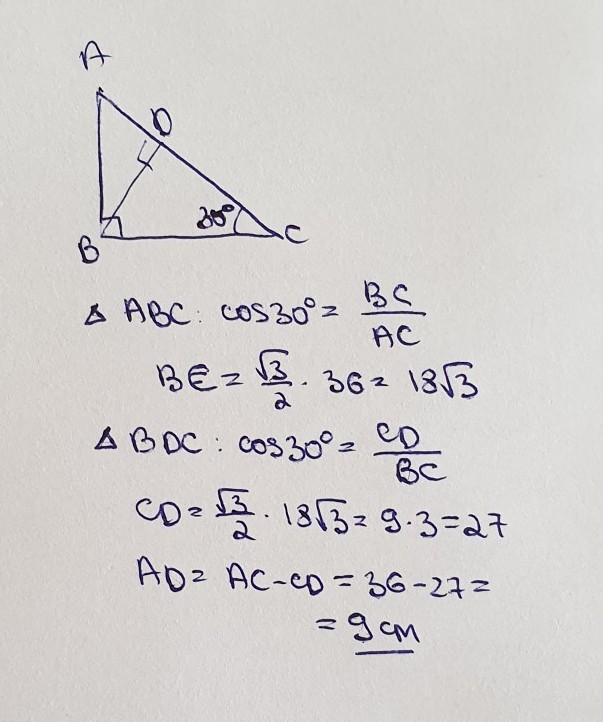 A
D
30°
B
C
△ ABC: cos30° = BC/AC
BC = √3/2 · 36 = 18√3
△ BDC: cos30° = CD/BC
CD = √3/2 · 18√3 = 9·3 = 27
AD = AC - CD = 36 - 27 =
= 9 cm